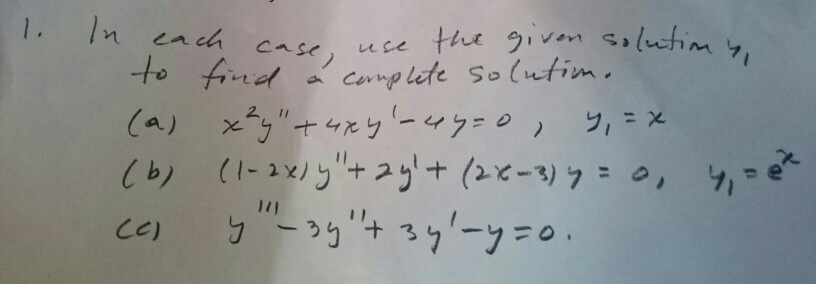 1. In each case, use the given solution y₁
to find a complete solution.
(a) x²y'' + 4xy' - 4y = 0, y₁ = x
(b) (1-2x)y'' + 2y' + (2x-3)y = 0, y₁ = eˣ
(c) y''' - 3y'' + 3y' - y = 0.